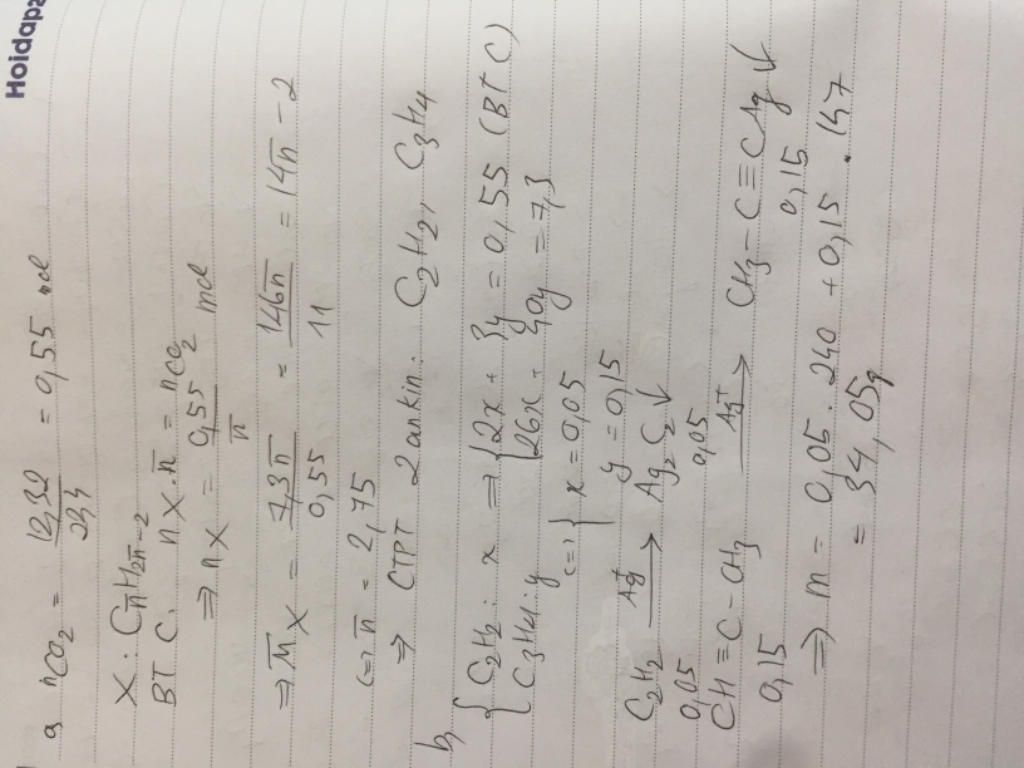 Hoidap2
a, nCO2 = 12,32/22,4 = 0,55 mol
X : Cn̄H2n̄-2
BT C : nX.n̄ = nCO2
=> nX = 0,55/n̄ mol
=> M̄X = 7,3n̄/0,55 = 146n̄/11 = 14n̄ - 2
<=> n̄ = 2,75
=> CTPT 2 ankin: C2H2, C3H4
b, { C2H2: x => { 2x + 3y = 0,55 (BT C)
C3H4: y { 26x + 40y = 7,3
<=> { x = 0,05
y = 0,15
C2H2 Ag+ → Ag2C2↓
0,05 0,05
CH≡C-CH3 Ag+ → CH3-C≡CAg↓
0,15 0,15
=> m = 0,05.240 + 0,15.147
= 34,05g